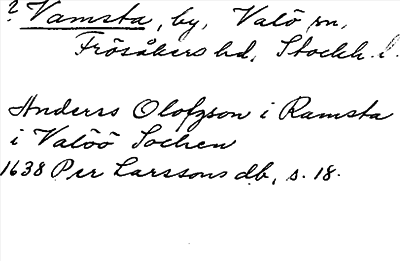 ? Vamsta, by, Valö sn,
Frösåkers hd, Stockh. l.
Anders Olofzson i Ramsta
i Valöö Sochen
1638 Per Larssons db, s. 18.